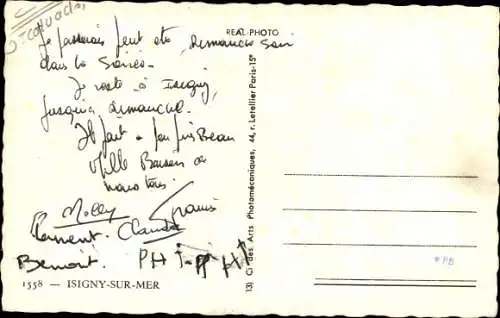 REAL-PHOTO
Je passerais peut etre, Dimanche Soir
dans la Soirée.
Je reste à Isigny,
jusqu'à dimanche.
Il fait à peu près Beau
Mille Baisers de
nous tous.
Molly Francis
Clement. Claude
Benoit. PHILIPPE
1558 — ISIGNY-SUR-MER
13) Cie des Arts Photomécaniques, 44, r. Letellier Paris-15e